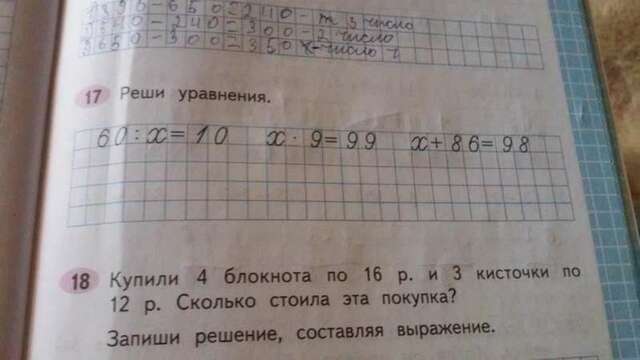 240-300-2 число
3650-300-350 х-число 1
17 Реши уравнения.
60:x=10 x·9=99 x+86=98
18 Купили 4 блокнота по 16 р. и 3 кисточки по
12 р. Сколько стоила эта покупка?
Запиши решение, составляя выражение.